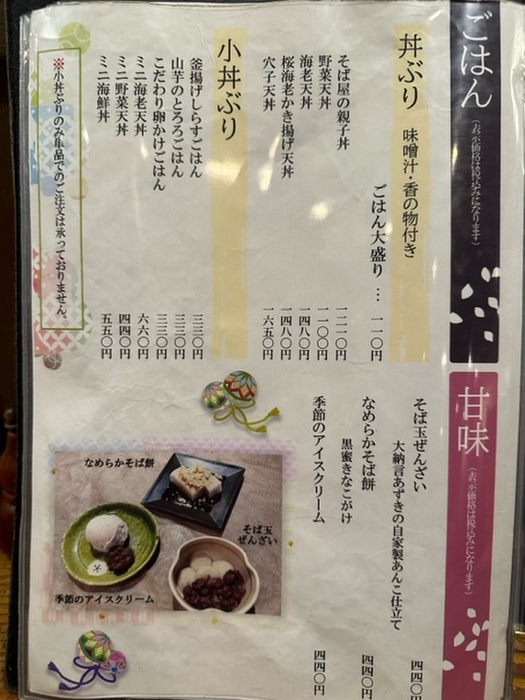 ごはん
（表示価格は税込みになります）
丼ぶり 味噌汁・香の物付き
ごはん大盛り … 一一〇円
そば屋の親子丼 一一一〇円
野菜天丼 一一〇〇円
海老天丼 一四八〇円
桜海老かき揚げ天丼 一四八〇円
穴子天丼 一六五〇円
小丼ぶり
釜揚げしらすごはん 三三〇円
山芋のとろろごはん 三三〇円
こだわり卵かけごはん 三三〇円
ミニ海老天丼 六六〇円
ミニ野菜天丼 四四〇円
ミニ海鮮丼 五五〇円
※小丼ぶりのみ単品でのご注文は承っておりません。
甘味
（表示価格は税込みになります）
そば玉ぜんざい 四四〇円
大納言あずきの自家製あんこ仕立て
なめらかそば餅 四四〇円
黒蜜きなこがけ
季節のアイスクリーム 四四〇円
なめらかそば餅
そば玉
ぜんざい
季節のアイスクリーム